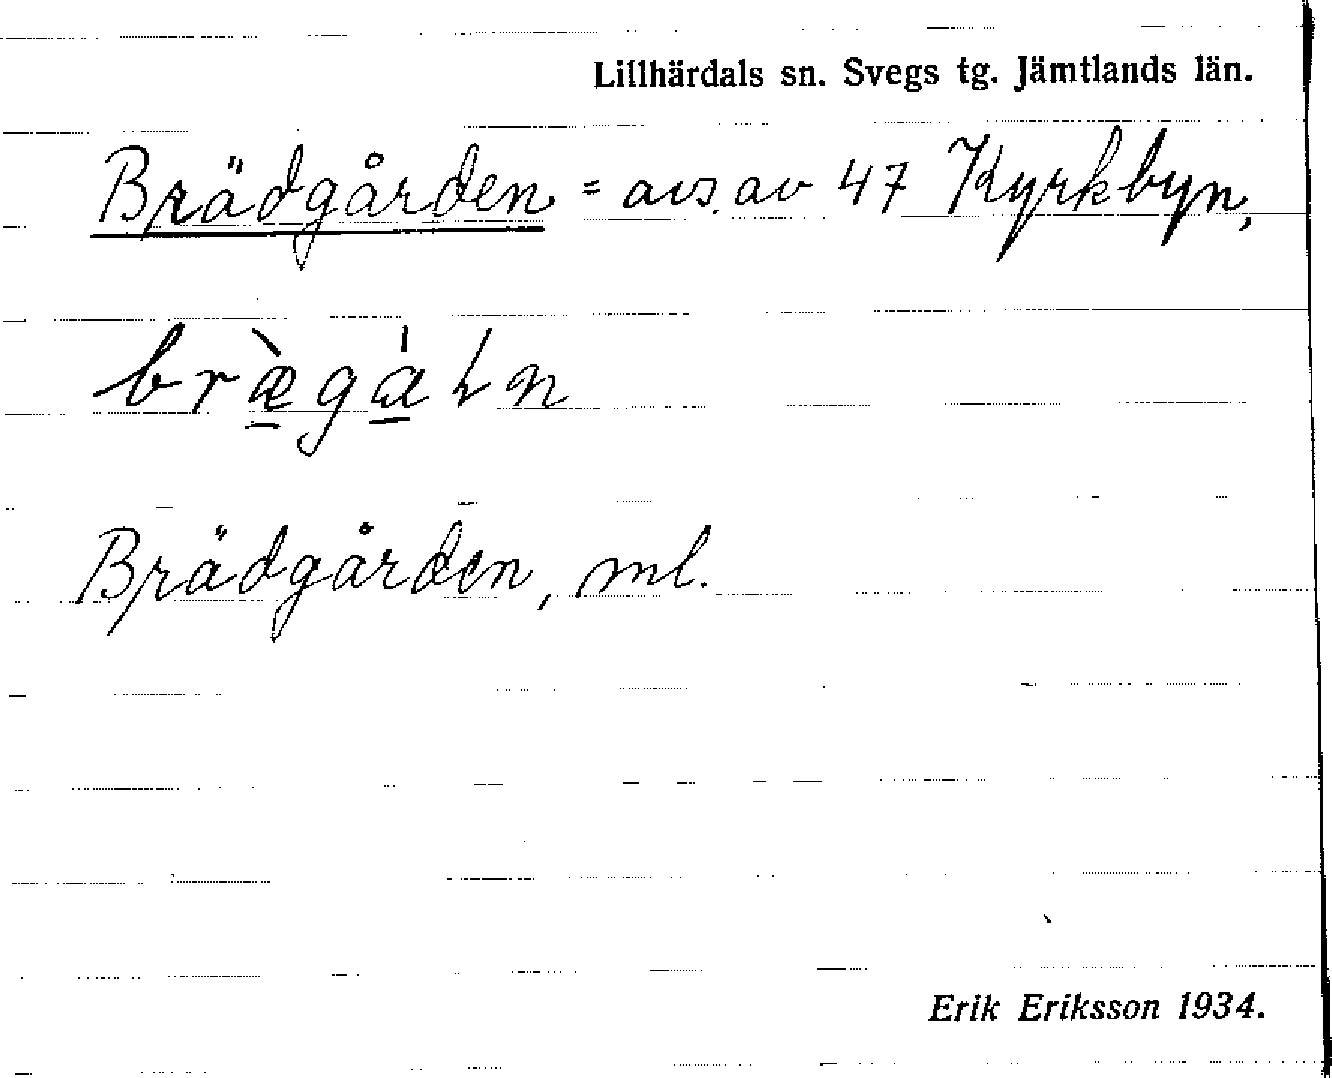 Lillhärdals sn. Svegs tg. Jämtlands län.
Brädgården = avs. av 47 Kyrkbyn,
bræ̀gàln
Brädgården, ml.
Erik Eriksson 1934.